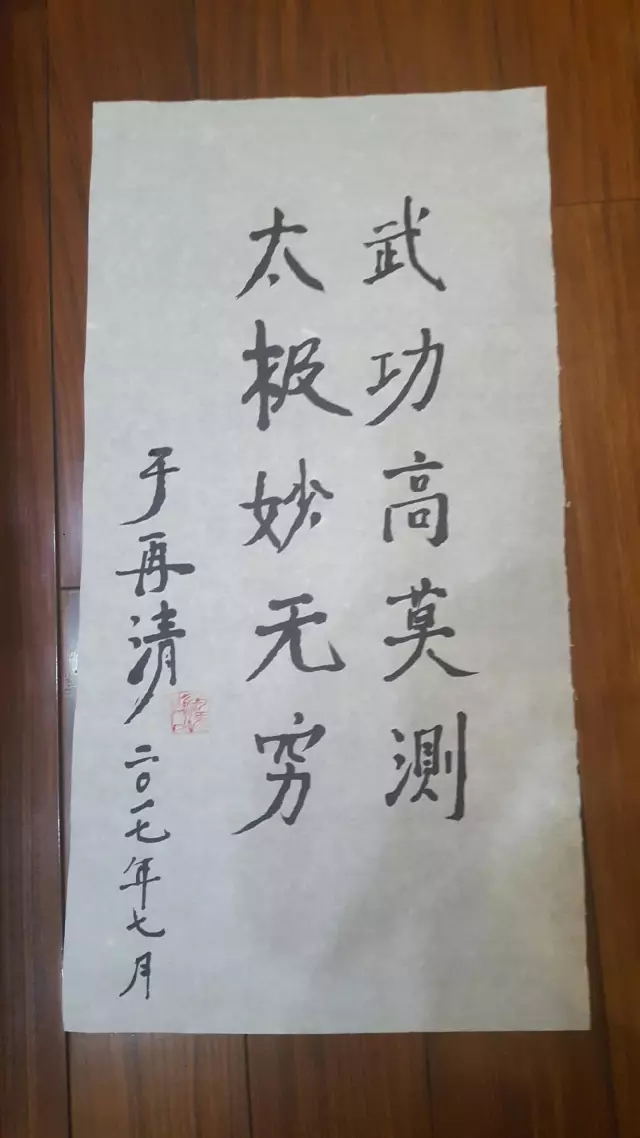 武功高莫测
太极妙无穷
于再清
二〇一七年七月